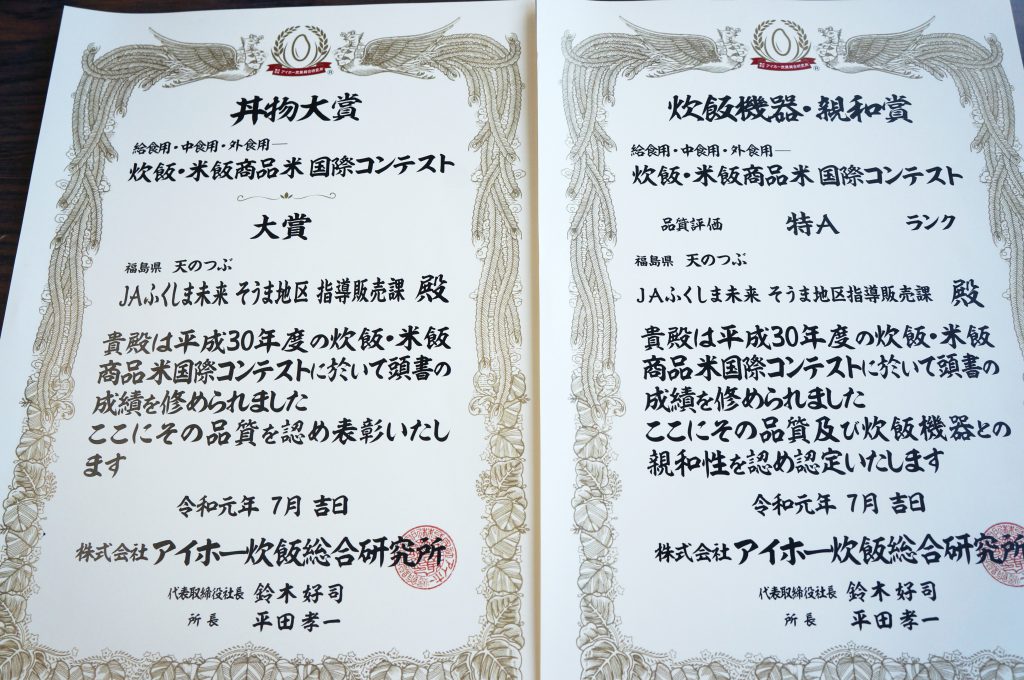 丼物大賞
給食用・中食用・外食用―
炊飯・米飯商品米 国際コンテスト
大賞
福島県 天のつぶ
JAふくしま未来 そうま地区 指導販売課 殿
貴殿は平成30年度の炊飯・米飯
商品米国際コンテストに於いて頭書の
成績を修められました
ここにその品質を認め表彰いたし
ます
令和元年 7月 吉日
株式会社 アイホー炊飯総合研究所
代表取締役社長 鈴木好司
所長 平田孝一
炊飯機器・親和賞
給食用・中食用・外食用―
炊飯・米飯商品米 国際コンテスト
品質評価 特A ランク
福島県 天のつぶ
JAふくしま未来 そうま地区指導販売課 殿
貴殿は平成30年度の炊飯・米飯
商品米国際コンテストに於いて頭書の
成績を修められました
ここにその品質及び炊飯機器との
親和性を認め認定いたします
令和元年 7月 吉日
株式会社 アイホー炊飯総合研究所
代表取締役社長 鈴木好司
所長 平田孝一